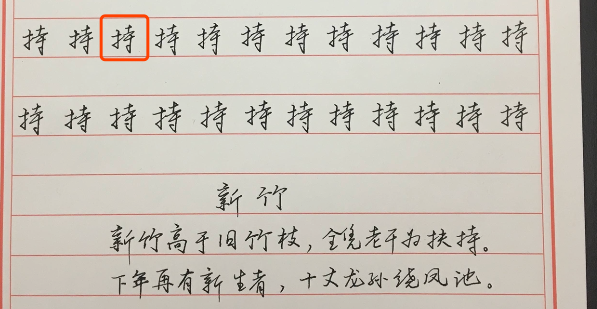 持持持持持持持持持持持持
持持持持持持持持持持持持
新竹
新竹高于旧竹枝，全凭老干为扶持。
下年再有新生者，十丈龙孙绕凤池。